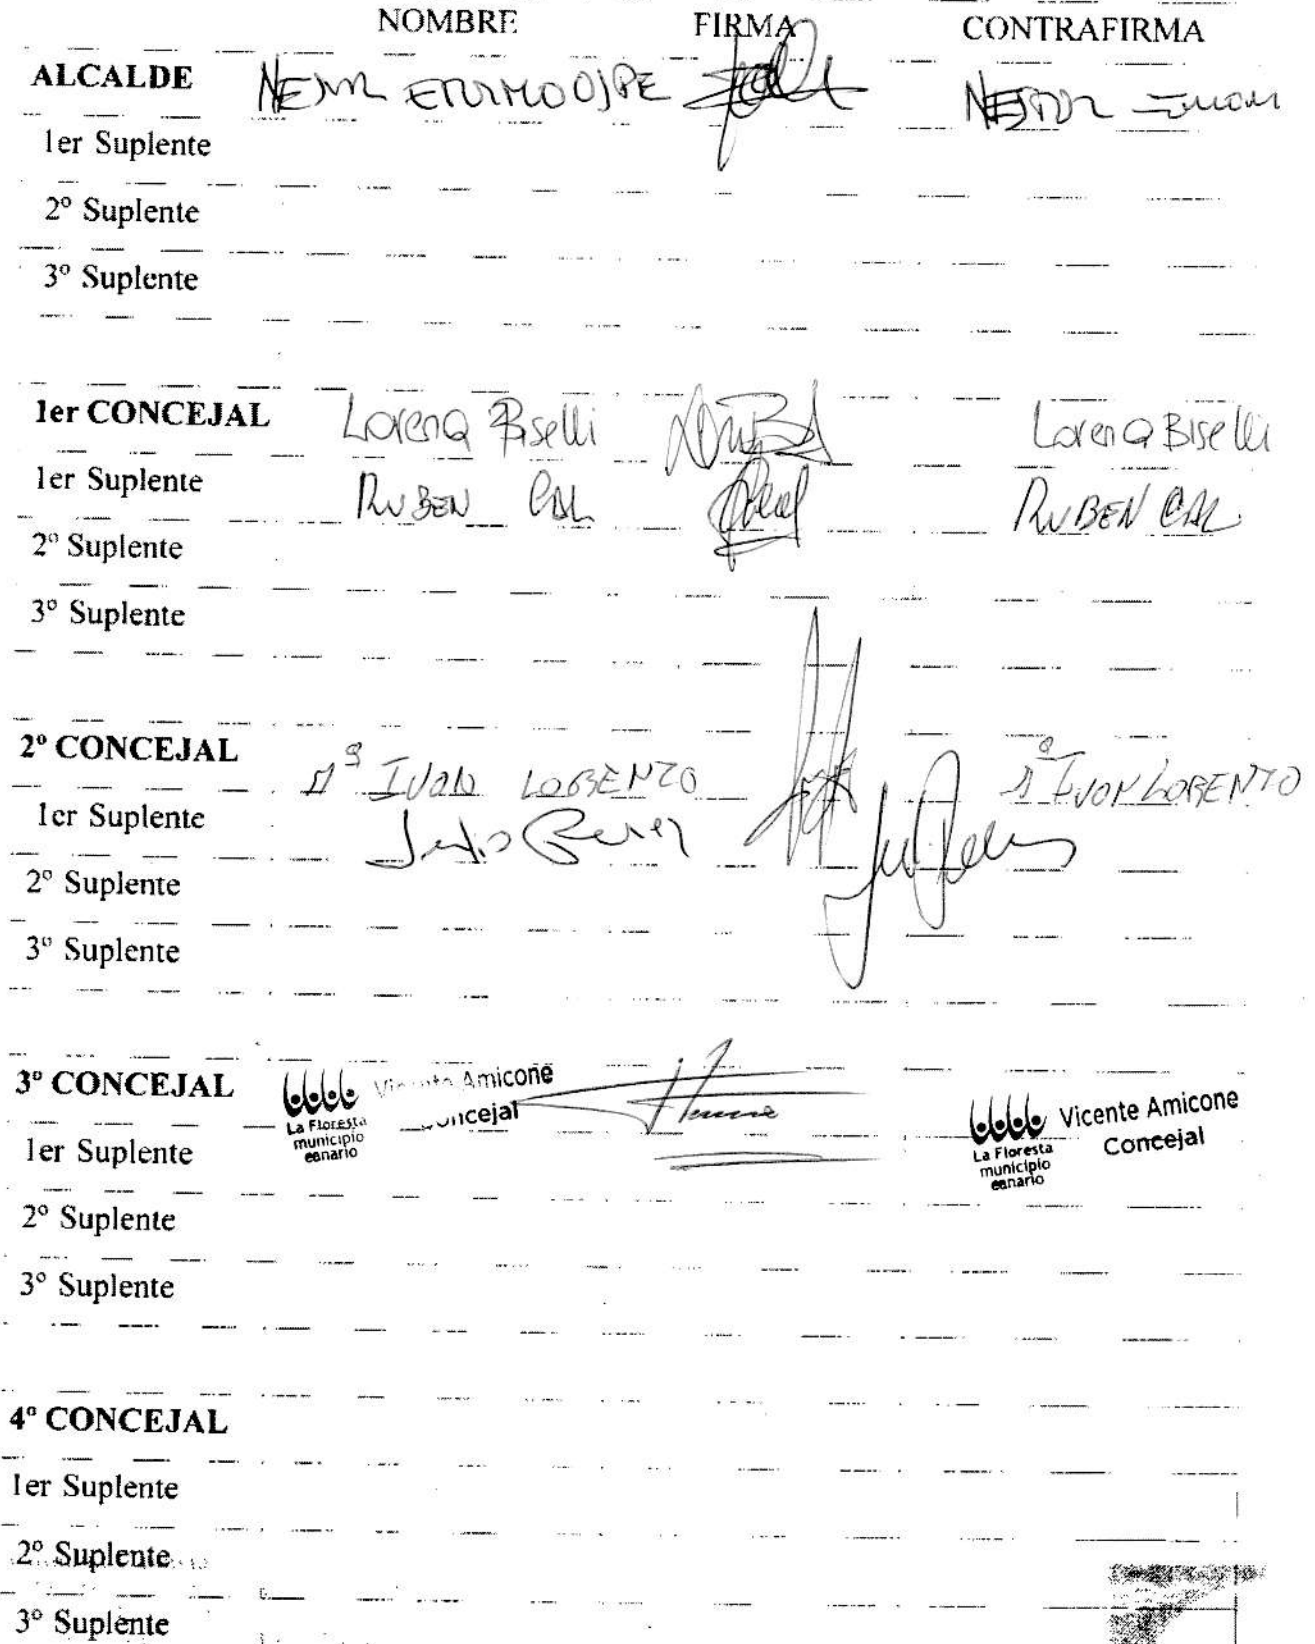 NOMBRE FIRMA CONTRAFIRMA
ALCALDE
1er Suplente
2º Suplente
3º Suplente
1er CONCEJAL Lorena Biselli Lorena Biselli
1er Suplente RUBEN CAL RUBEN CAL
2º Suplente
3º Suplente
2º CONCEJAL Mª IVON LORENZO Mª IVON LORENZO
1er Suplente
2º Suplente
3º Suplente
3º CONCEJAL Vicente Amicone Vicente Amicone
Concejal Concejal
La Floresta La Floresta
municipio municipio
canario canario
1er Suplente
2º Suplente
3º Suplente
4º CONCEJAL
1er Suplente
2º Suplente
3º Suplente